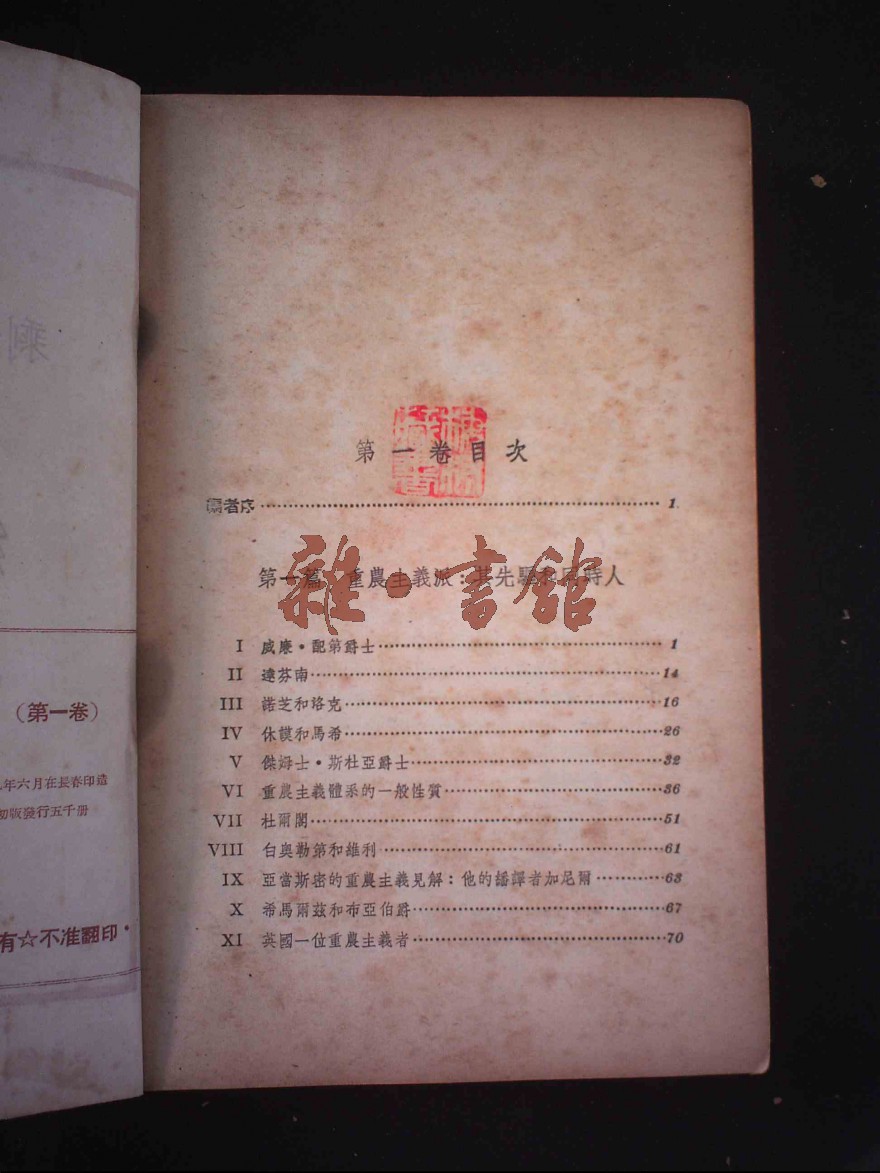 剩
（第一卷）
年六月在長春印造
初版發行五千册
有☆不准翻印·
第一卷目次
編者序 1
第一篇 重農主義派：其先驅和同時人
雜·書館
I 威廉·配第爵士 1
II 達芬南 14
III 諾芝和洛克 16
IV 休謨和馬希 26
V 傑姆士·斯杜亞爵士 32
VI 重農主義體系的一般性質 36
VII 杜爾閣 51
VIII 白奧勒第和維利 61
IX 亞當斯密的重農主義見解：他的繙譯者加尼爾 63
X 希馬爾茲和布亞伯爵 67
XI 英國一位重農主義者 70